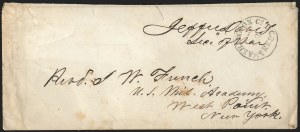 Jeffer. Davis
Sec. of War
Revd. J W. French
U.S. Mil. Academy
West Point
New York.